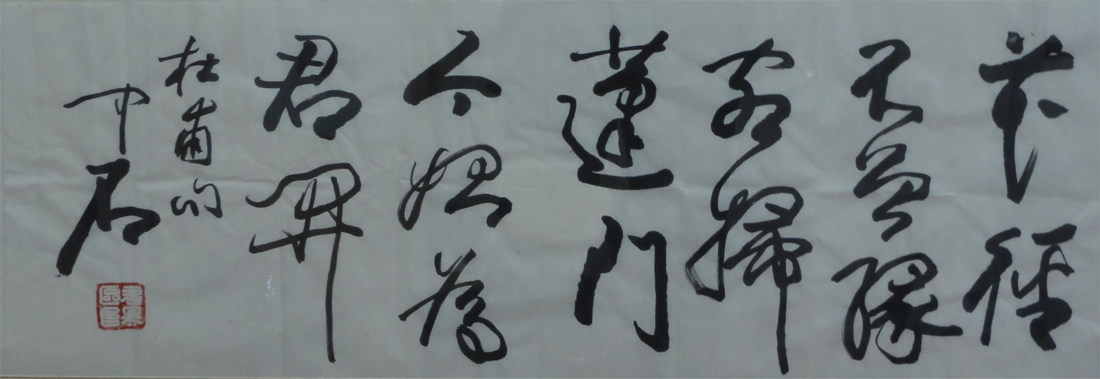 花径
不曾缘
客扫
蓬门
今始为
君开
杜甫句
中石